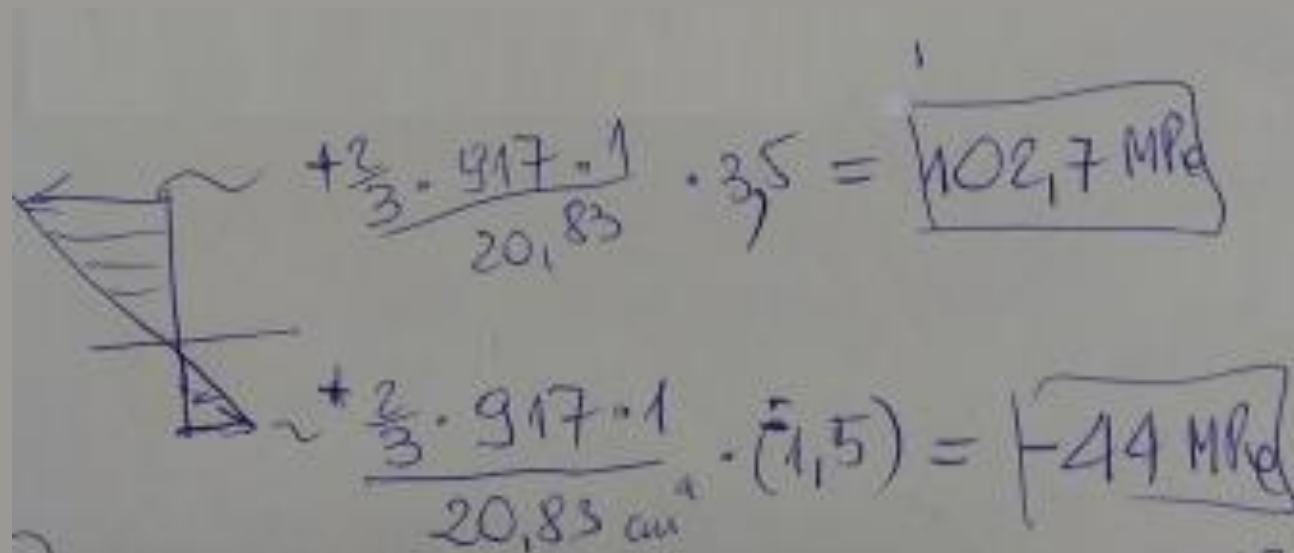 +2/3 · 917 · 1 / 20,83 · 3,5 = 102,7 MPa
+2/3 · 917 · 1 / 20,83 cm⁴ · (-1,5) = -44 MPa